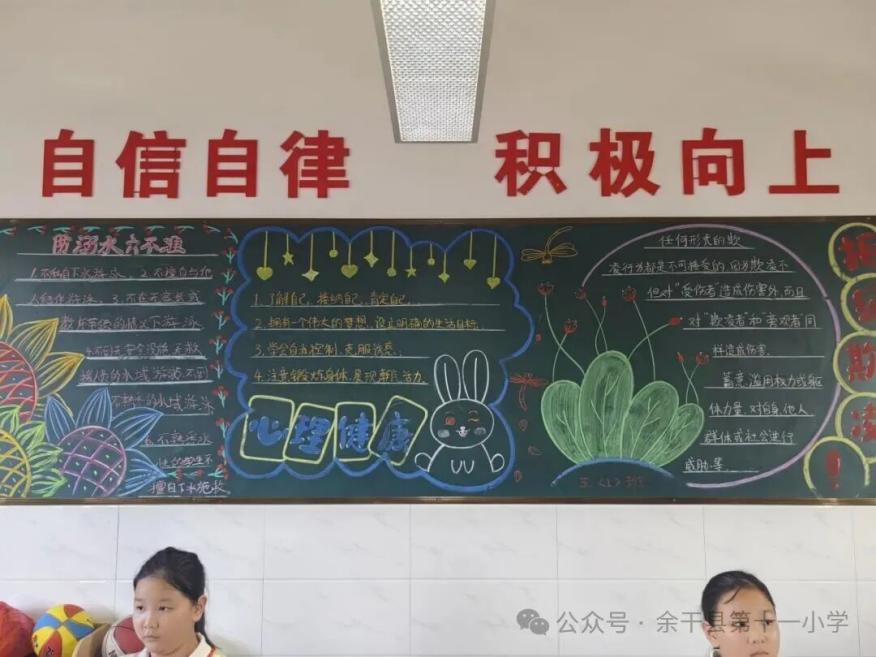 自信自律 积极向上
防溺水六不准
1.不私自下水游泳 2.不擅自与他
人结伴游泳 3.不在无家长或
教师带领的情况下游泳
4.不到无安全设施无救
援人员的水域游泳 5.不到
不熟悉的水域游泳
6.不熟悉水
性的学生不
擅自下水施救
1.了解自己,接纳自己,肯定自己。
2.拥有一个伟大的梦想,设立明确的生活目标。
3.学会自我控制,克服诱惑。
4.注意锻炼身体,展现朝气活力
心理健康
任何形式的欺
凌行为都是不可接受的 因为欺凌不
但对“受伤者”造成伤害外,而且
对“欺凌者”和“旁观者”同
样造成伤害。
蓄意滥用权力或躯
体力量,对自身、他人
群体或社会进行
威胁等
三〈1〉班
欺
凌
!
公众号·余干县第十一小学